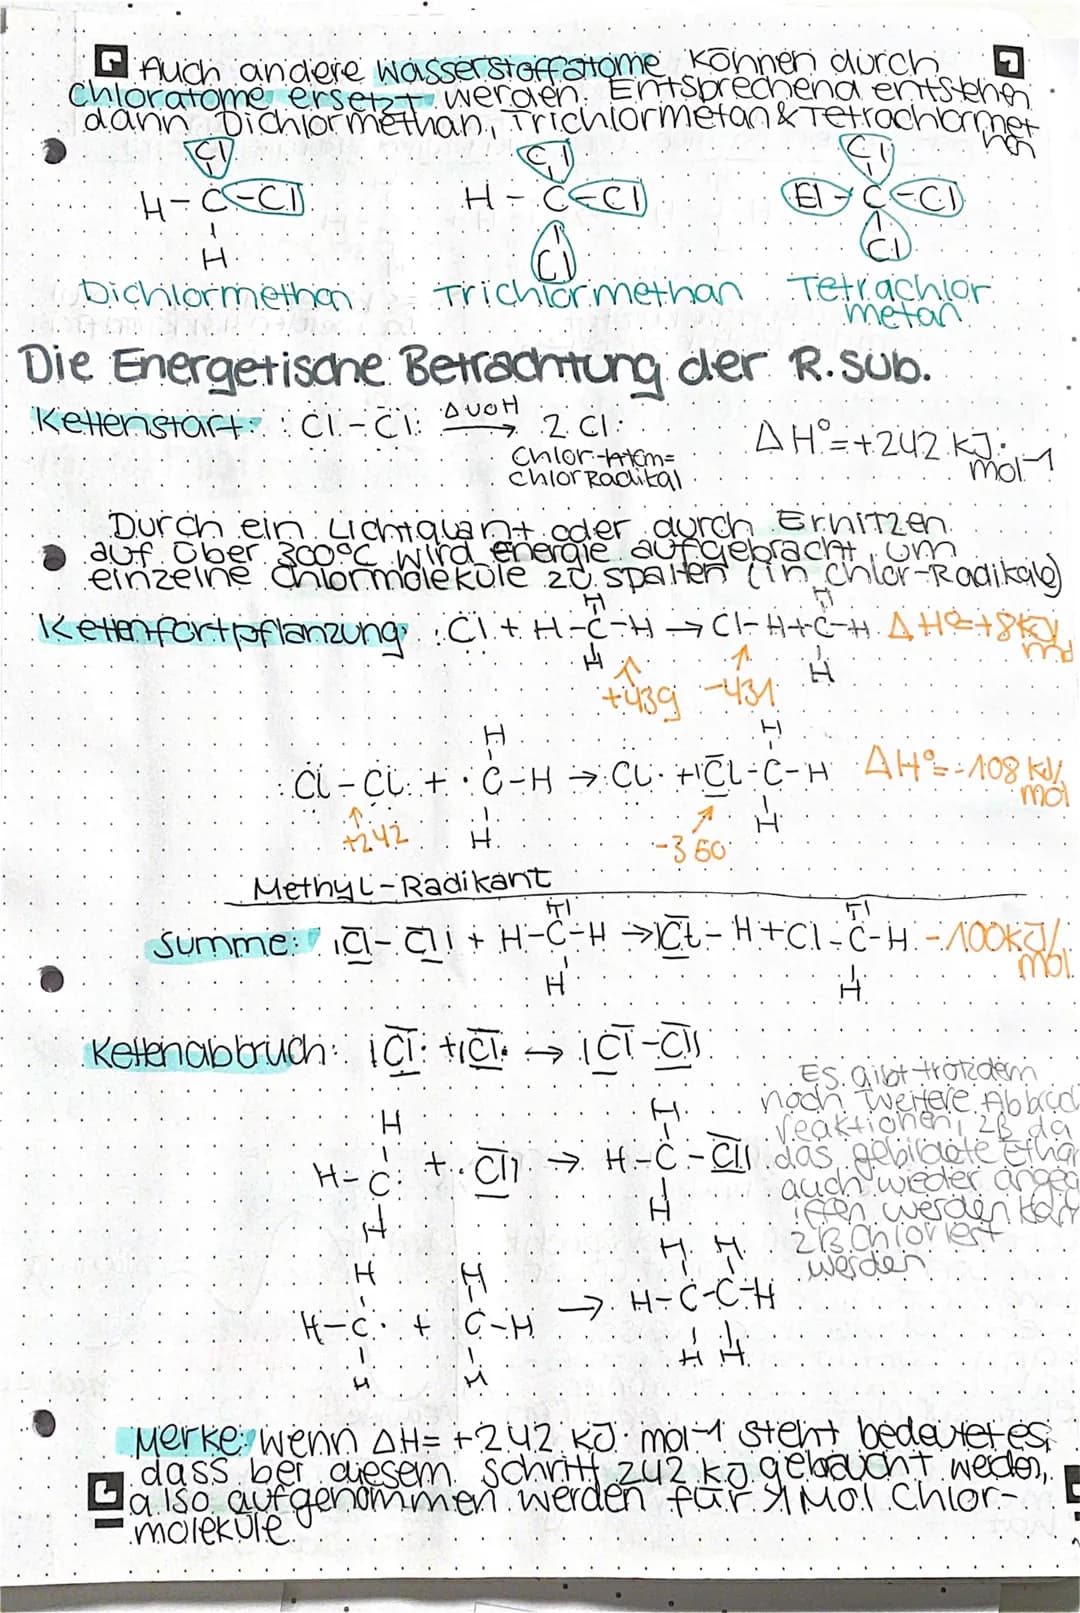 Auch andere Wasserstoffatome können durch
Chloratome ersetzt werden. Entsprechend entstehen
dann Dichlormethan, Trichlormetan & Tetrachlormet
han
Cl Cl Cl
H-C-Cl H-C-Cl El-C-Cl
H Cl Cl
Dichlormethan Trichlormethan Tetrachlor
metan
Die Energetische Betrachtung der R.Sub.
Kettenstart: Cl-Cl → 2 Cl· ΔH°=+242 kJ·
mol-1
Chlor-Atom=
Chlor Radikal
Durch ein Lichtquant oder durch Erhitzen
auf über 300°C wird energie aufgebracht, um
einzelne Chlormoleküle zu spalten (in Chlor-Radikale)
H H
Kettenfortpflanzung: ·Cl + H-C-H → Cl-H+·C-H ΔH°=+8kJ/
mol
H H
+439 -431
H H
Cl-Cl + ·C-H → Cl· + Cl-C-H ΔH°=-108 kJ/
mol
H H
+242 -350
Methyl-Radikant
H H
Summe: Cl-Cl + H-C-H → Cl-H+Cl-C-H -100kJ/
mol
H H
Kettenabbruch: Cl· + Cl· → Cl-Cl
Es gibt trotzdem
noch weitere Abbruch
reaktionen, zB da
das gebildete Ethan
auch wieder angegr
iffen werden kann
zB Chloriert
werden
H H
H-C· + ·Cl → H-C-Cl
H H
H H H H
H-C· + C-H → H-C-C-H
H H H H
Merke: wenn ΔH= +242 kJ·mol-1 steht bedeutet es,
dass bei diesem Schritt 242 kJ gebraucht werden,
also aufgenommen werden für 1 Mol Chlor-
moleküle.